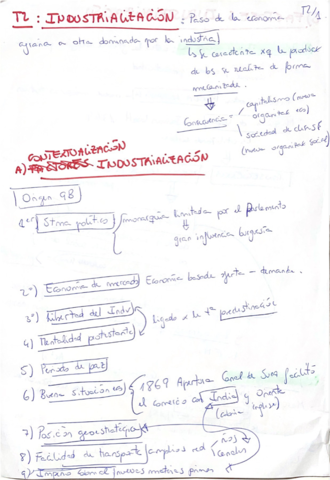 T2: INDUSTRIALIZACIÓN: Paso de la economía
T2/1
agraria a otra dominada por la industria
se caracteriza xq la producc
de bs se realiza de forma
mecanizada
Consecuencia =
capitalismo (nueva
organizac eca)
sociedad de clases
(nueva organizac social)
CONTEXTUALIZACIÓN
A) FACTORES INDUSTRIALIZACIÓN
Origen GB
1er) Stma político
monarquía limitada por el Parlamento
gran influencia burguesía
2º) Economía de mercado Economía basada oferta-demanda.
3º) Libertad del Indiv
ligado a la predestinación
4) Mentalidad protestante
5) Periodo de paz
6) Buena situación
1869 Apertura Canal de Suez facilitó
el comercio con India y Oriente
(colonia inglesa)
7) Posición geoestratégica
8) Facilidad de transporte amplios red
ríos
canales
9) Imperio colonial nuevas materias primas